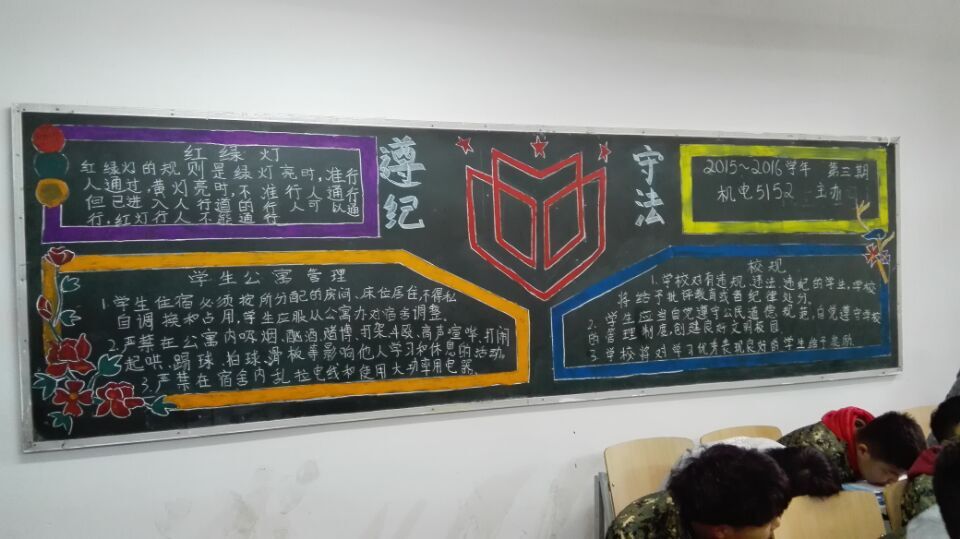 红绿灯
红绿灯的规则是绿灯亮时,准行
人通过,黄灯亮时,不准行人通过
但已进入人行道的行人可以通
行,红灯行人不能通行
遵纪
守法
2015~2016学年 第三期
机电5152 主办
学生公寓管理
1.学生住宿必须按所分配的房间、床位居住,不得私
自调换和占用,学生应服从公寓办对宿舍调整.
2.严禁在公寓内吸烟.酗酒.赌博.打架斗殴.高声喧哗.打闹
起哄.踢球.拍球.滑板等影响他人学习和休息的活动.
3.严禁在宿舍内乱拉电线和使用大功率用电器.
校规
1.学校对有违规.违法.违纪的学生,学校
将给予批评教育或者纪律处分.
2.学生应当自觉遵守公民道德规范,自觉遵守学校
的管理制度,创建良好文明校园
3.学校将对学习优秀表现良好的学生给予奖励.